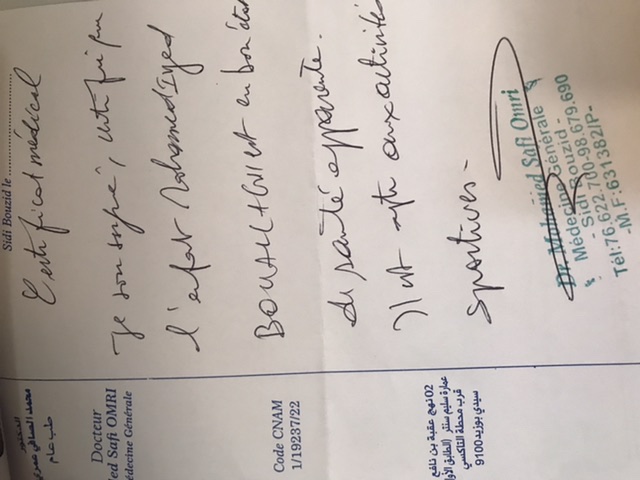 محمد الصافي عمري
طب عام
Docteur
ed Safi OMRI
édecine Générale
Code CNAM
1/19297/22
02 نهج عقبة بن نافع
عمارة سليم سنتر (الطابق الأول
قرب محطة التاكسي
سيدي بوزيد 9100
Sidi Bouzid le
Certificat médical
Je soussigné, certifie que
l'enfant Mohamed Iyed
est en bon état
de santé apparente.
Il est apte aux activités
sportives.
Dr. Mohamed Safi Omri
Médecine Générale
- Sidi Bouzid -
Tél:76.622.700-98.679.690
-M.F:631382/P-